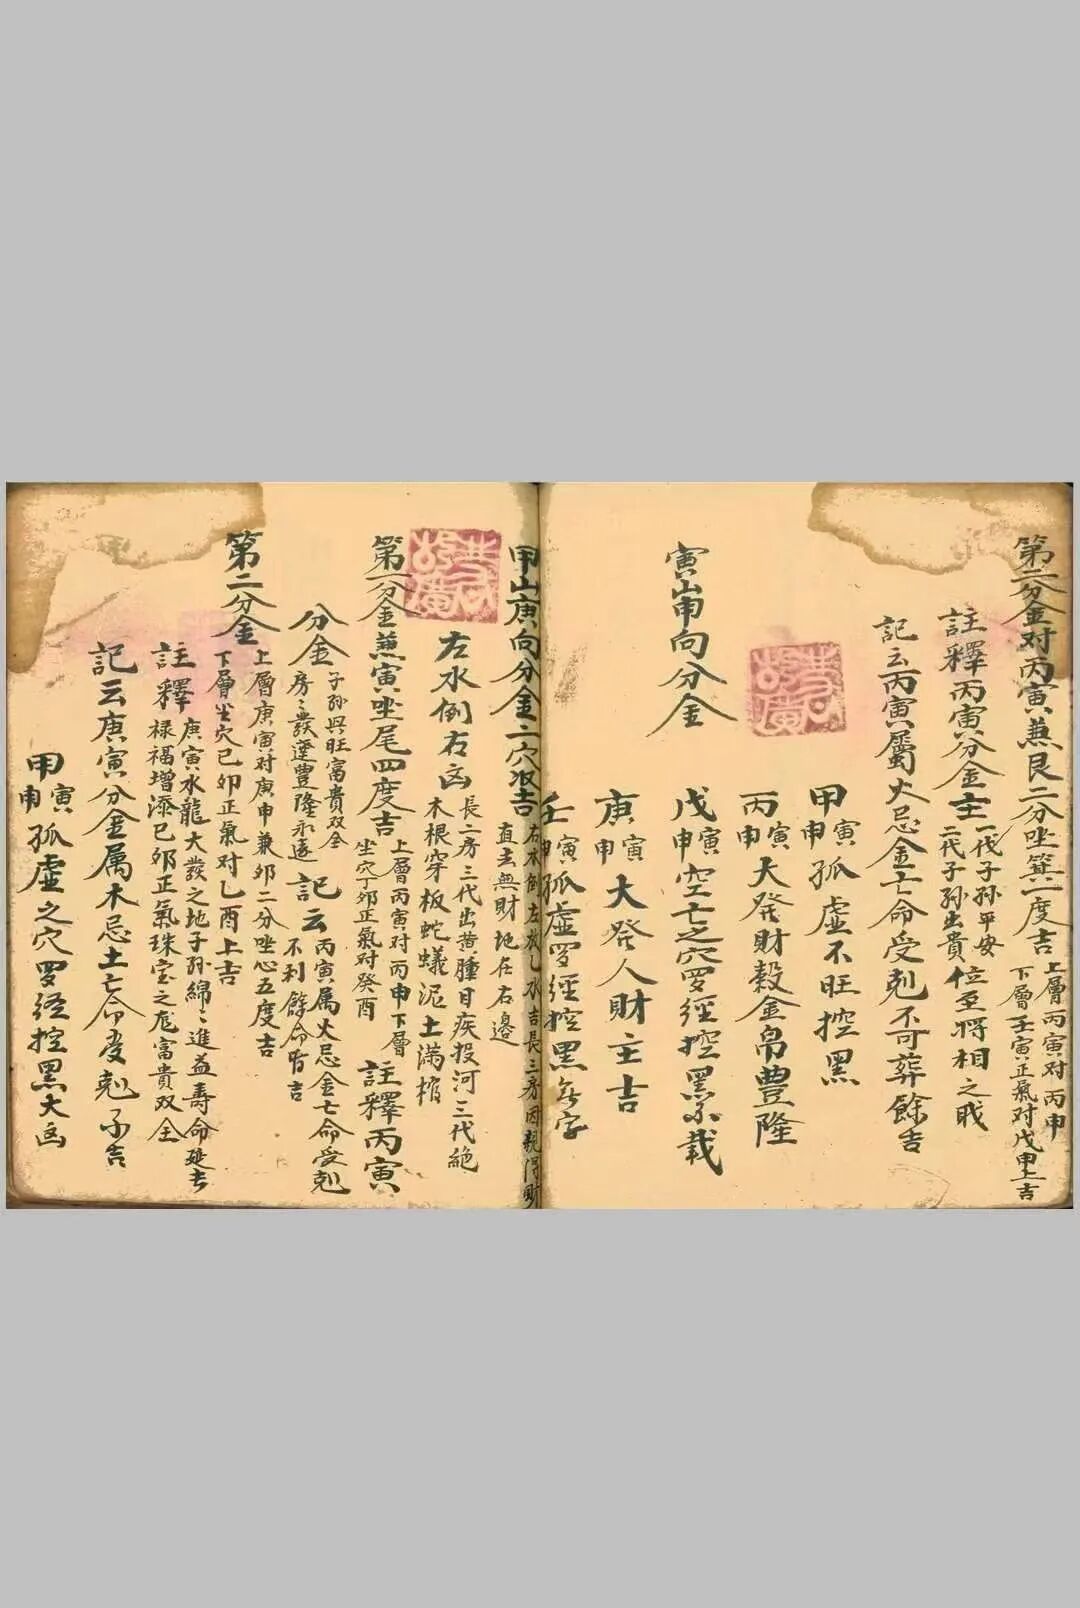 第二分金对丙寅兼艮二分坐箕一度吉
上層丙寅对丙申
下層壬寅正氣对戊申上吉
註釋丙寅分金主
一代子孙平安
二代子孙出貴
位至將相之戝
記云丙寅屬火忌金亡命受剋不可葬餘吉
寅山申向分金
甲寅申孤虛不旺控黑
丙寅申大発財穀金帛豊隆
戊寅申空亡之穴罗經控黑不载
庚寅申大発人財主吉
壬寅申孤虛罗經控黑無字
甲山庚向分金二穴
右水倒左放乙水吉長三房因親得財
直去無財地在右邊
左水倒右凶
長二房三代出黄腫目疾投河三代絶
木根穿板蛇蟻泥土滿棺
第一分金兼寅坐尾四度吉
上層丙寅对丙申下層
坐穴丁卯正氣对癸酉
註釋丙寅
分金
子孙興旺富貴双全
房〻發達豐隆永遠
記云
丙寅属火忌金亡命受剋
不利餘命皆吉
第二分金
上層庚寅对庚申兼卯二分坐心五度吉
下層坐穴已卯正氣对乙酉上吉
註釋
庚寅水龍大發之地子孙綿〻進益壽命延长
禄福增添已卯正氣珠宝之尨富貴双全
記云庚寅分金属木忌土亡命受剋不吉
甲寅申孤虛之穴罗经控黑大凶